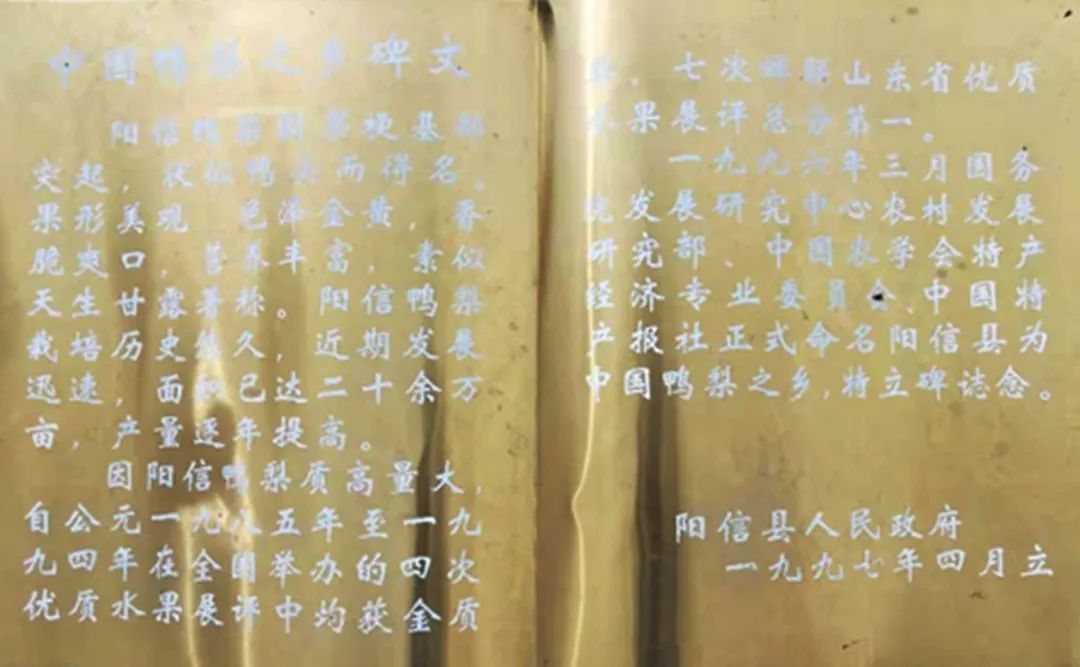 中国鸭梨之乡碑文
阳信鸭梨因果梗基部
突起，状似鸭头而得名。
果形美观，色泽金黄，香
脆爽口，营养丰富，素似
天生甘露著称。阳信鸭梨
栽培历史悠久，近期发展
迅速，面积已达二十余万
亩，产量逐年提高。
因阳信鸭梨质高量大，
自公元一九八五年至一九
九四年在全国举办的四次
优质水果展评中均获金质
七次蝉联山东省优质
水果展评总分第一。
一九九六年三月国务
院发展研究中心农村发展
研究部、中国农学会特产
经济专业委员会、中国特
产报社正式命名阳信县为
中国鸭梨之乡，特立碑志念。
阳信县人民政府
一九九七年四月立